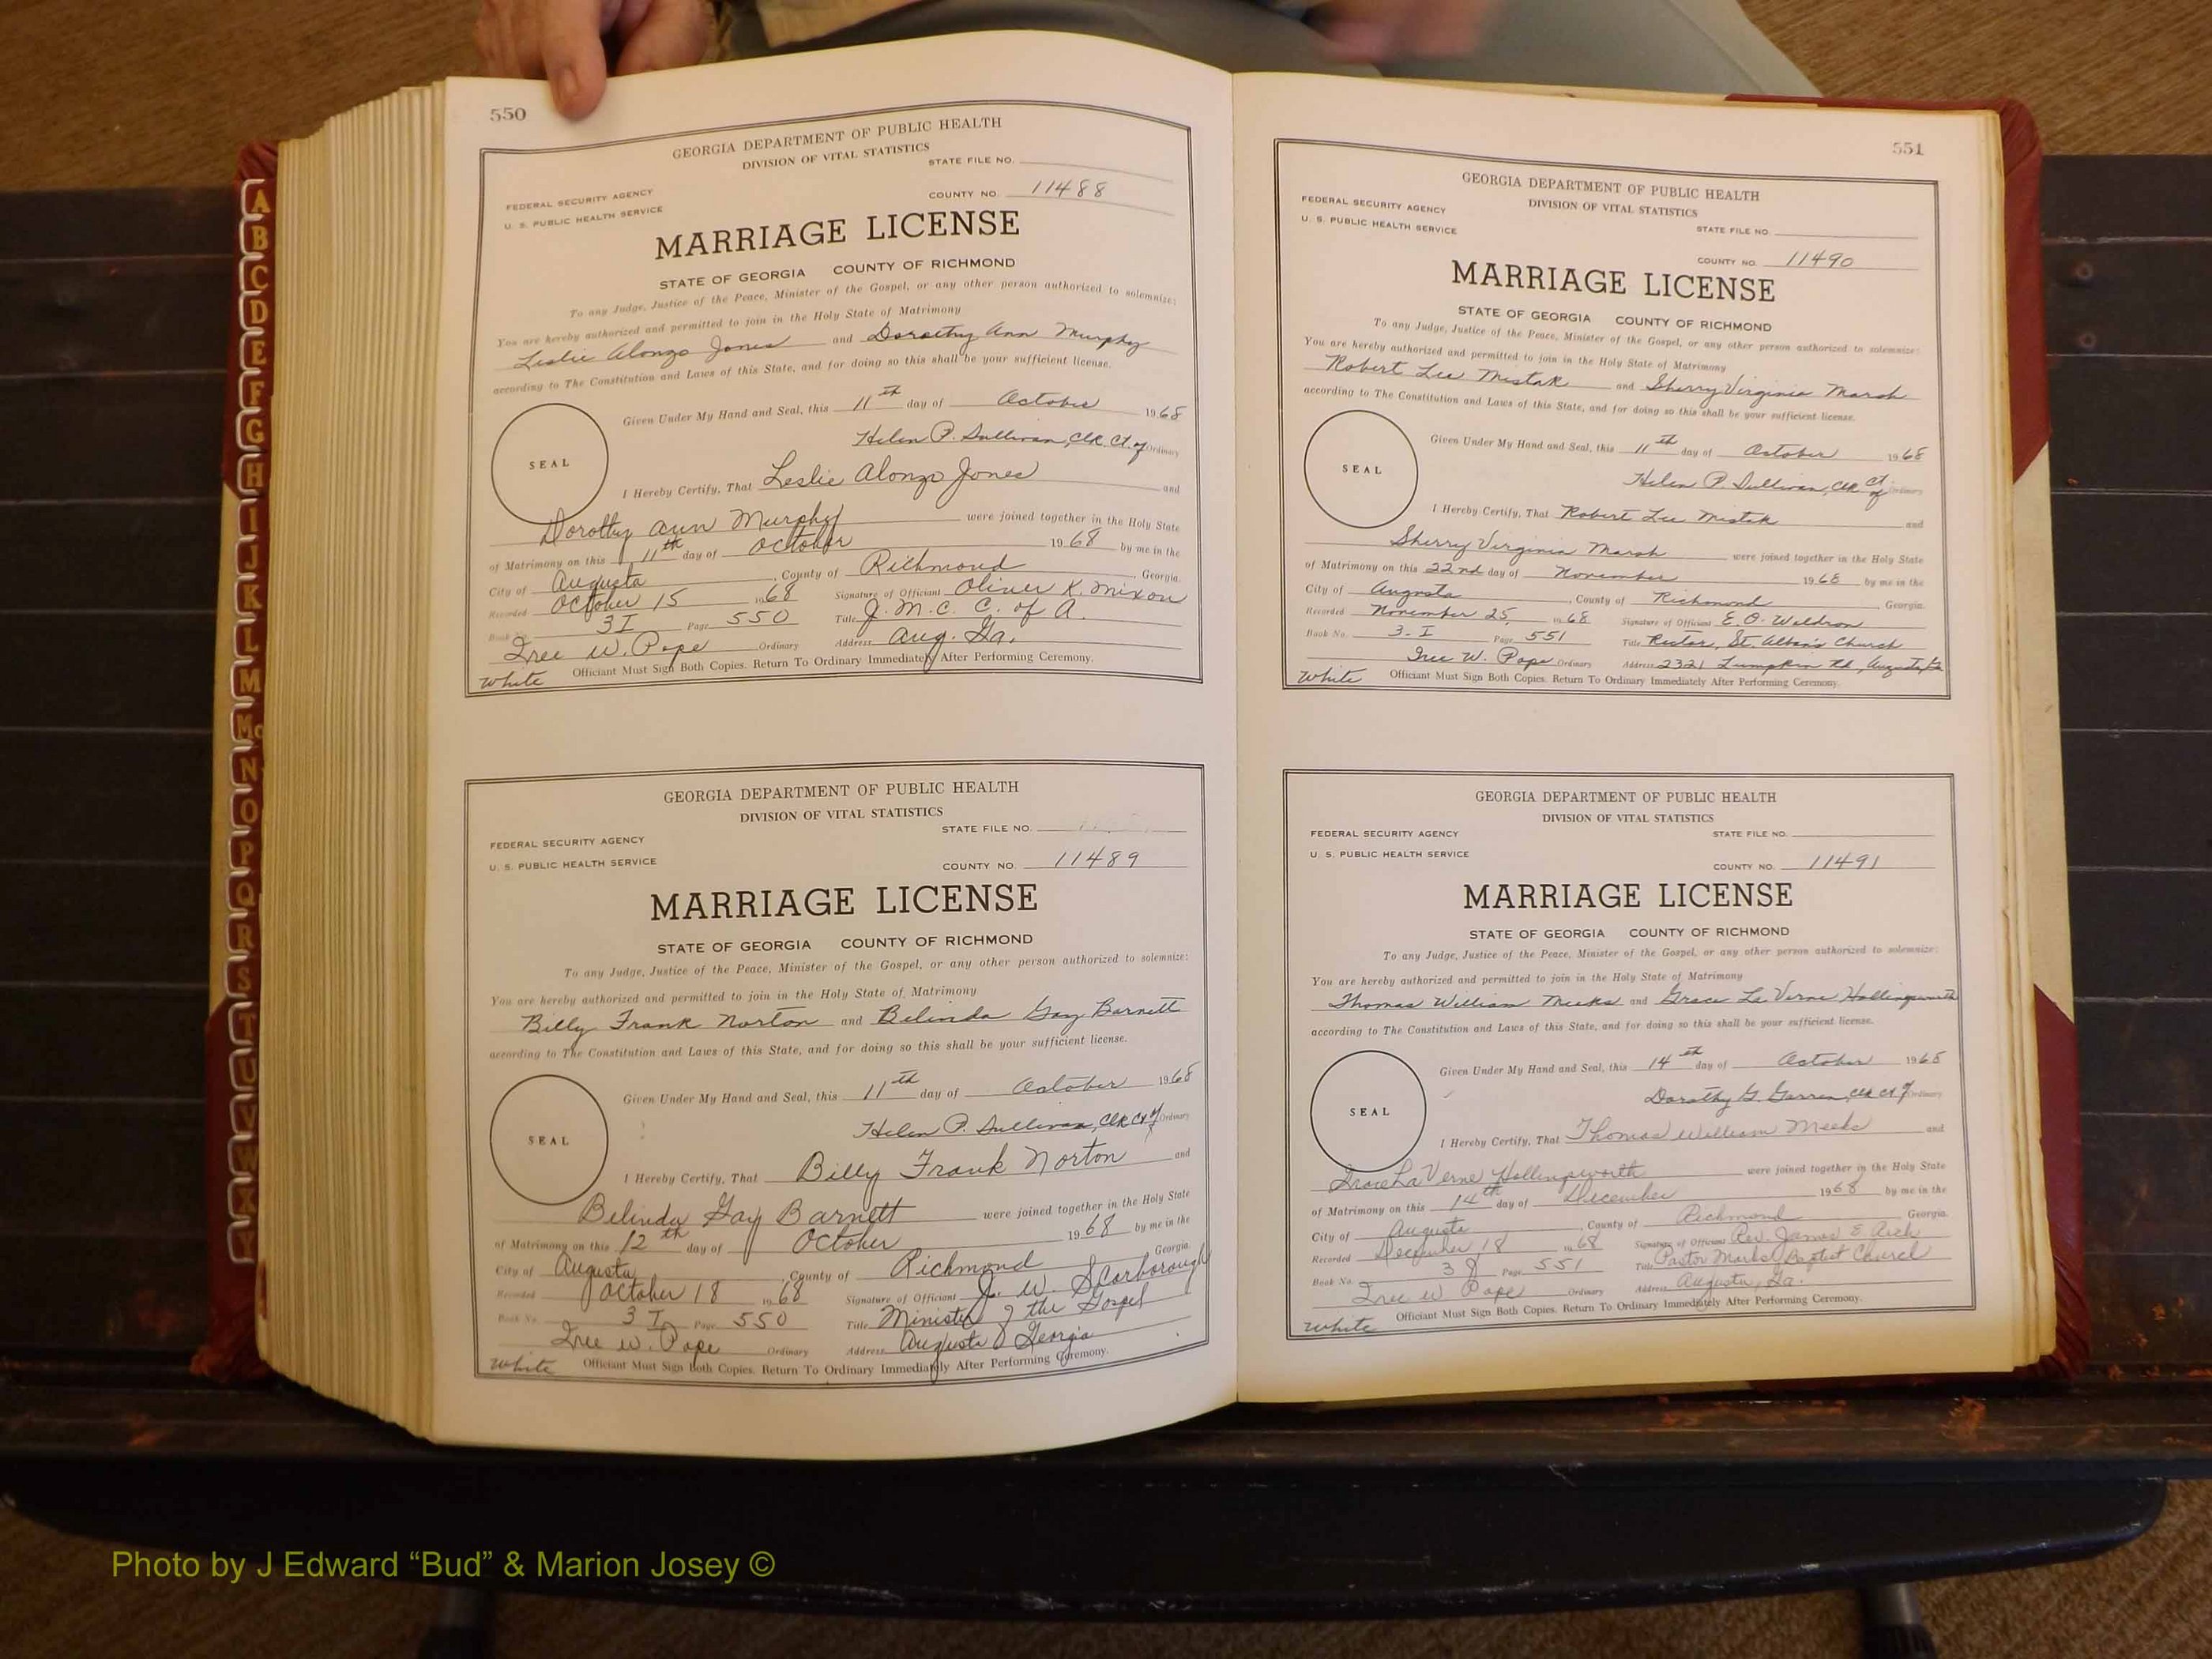 550
GEORGIA DEPARTMENT OF PUBLIC HEALTH
DIVISION OF VITAL STATISTICS
STATE FILE NO.
FEDERAL SECURITY AGENCY
COUNTY NO. 11488
U. S. PUBLIC HEALTH SERVICE
MARRIAGE LICENSE
STATE OF GEORGIA COUNTY OF RICHMOND
To any Judge, Justice of the Peace, Minister of the Gospel, or any other person authorized to solemnize:
You are hereby authorized and permitted to join in the Holy State of Matrimony
Leslie Alonzo Jones and Dorothy Ann Murphy
according to The Constitution and Laws of this State, and for doing so this shall be your sufficient license.
Given Under My Hand and Seal, this 11th day of October 1968
Helen P. Sullivan, Clk. Ct. of Ordinary
SEAL
I Hereby Certify, That Leslie Alonzo Jones and
Dorothy Ann Murphy were joined together in the Holy State
of Matrimony on this 11th day of October 1968 by me in the
City of Augusta, County of Richmond, Georgia.
Recorded October 15 1968 Signature of Officiant Oliver K. Mixon
Book No. 3I Page 550 Title J. M. C. C. of A.
Iree W. Pope Ordinary Address Aug. Ga.
Officiant Must Sign Both Copies. Return To Ordinary Immediately After Performing Ceremony.
White
GEORGIA DEPARTMENT OF PUBLIC HEALTH
DIVISION OF VITAL STATISTICS
STATE FILE NO.
FEDERAL SECURITY AGENCY
U. S. PUBLIC HEALTH SERVICE
COUNTY NO. 11489
MARRIAGE LICENSE
STATE OF GEORGIA COUNTY OF RICHMOND
To any Judge, Justice of the Peace, Minister of the Gospel, or any other person authorized to solemnize:
You are hereby authorized and permitted to join in the Holy State of Matrimony
Billy Frank Norton and Belinda Gay Barnett
according to The Constitution and Laws of this State, and for doing so this shall be your sufficient license.
Given Under My Hand and Seal, this 11th day of October 1968
Helen P. Sullivan, Clk Ct of Ordinary
SEAL
I Hereby Certify, That Billy Frank Norton and
Belinda Gay Barnett were joined together in the Holy State
of Matrimony on this 12th day of October 1968 by me in the
City of Augusta, County of Richmond Georgia.
Recorded October 18 1968 Signature of Officiant J. W. Scarborough
Book No. 3 I Page 550 Title Minister of the Gospel
Iree W. Pope Ordinary Address Augusta Georgia
Officiant Must Sign Both Copies. Return To Ordinary Immediately After Performing Ceremony.
White
551
GEORGIA DEPARTMENT OF PUBLIC HEALTH
DIVISION OF VITAL STATISTICS
FEDERAL SECURITY AGENCY
U. S. PUBLIC HEALTH SERVICE
STATE FILE NO.
COUNTY NO. 11490
MARRIAGE LICENSE
STATE OF GEORGIA COUNTY OF RICHMOND
To any Judge, Justice of the Peace, Minister of the Gospel, or any other person authorized to solemnize:
You are hereby authorized and permitted to join in the Holy State of Matrimony
Robert Lee Mistak and Sherry Virginia Marsh
according to The Constitution and Laws of this State, and for doing so this shall be your sufficient license.
Given Under My Hand and Seal, this 11th day of October 1968
Helen P. Sullivan, Clk Ct of Ordinary
SEAL
I Hereby Certify, That Robert Lee Mistak and
Sherry Virginia Marsh were joined together in the Holy State
of Matrimony on this 22nd day of November 1968 by me in the
City of Augusta, County of Richmond Georgia.
Recorded November 25, 1968 Signature of Officiant E. O. Waldron
Book No. 3-I Page 551 Title Rector, St. Alban's Church
Iree W. Pope Ordinary Address 2321 Lumpkin Rd, Augusta, Ga
Officiant Must Sign Both Copies. Return To Ordinary Immediately After Performing Ceremony.
White
GEORGIA DEPARTMENT OF PUBLIC HEALTH
DIVISION OF VITAL STATISTICS
FEDERAL SECURITY AGENCY
STATE FILE NO.
U. S. PUBLIC HEALTH SERVICE
COUNTY NO. 11491
MARRIAGE LICENSE
STATE OF GEORGIA COUNTY OF RICHMOND
To any Judge, Justice of the Peace, Minister of the Gospel, or any other person authorized to solemnize:
You are hereby authorized and permitted to join in the Holy State of Matrimony
Thomas William Meeks and Grace La Verne Hollingsworth
according to The Constitution and Laws of this State, and for doing so this shall be your sufficient license.
Given Under My Hand and Seal, this 14th day of October 1968
Dorothy G. Clk Ct of Ordinary
SEAL
I Hereby Certify, That Thomas William Meeks and
Grace La Verne Hollingsworth were joined together in the Holy State
of Matrimony on this 14th day of December 1968 by me in the
City of Augusta, County of Richmond Georgia.
Recorded December 18 1968 Signature of Officiant Rev. James E Rich
Book No. 3 Page 551 Title Pastor Baptist Church
Iree W Pope Ordinary Address Augusta, Ga.
Officiant Must Sign Both Copies. Return To Ordinary Immediately After Performing Ceremony.
White
A
B
C
D
E
F
G
H
I
J
K
L
M
Mc
N
O
P
Q
R
S
T
U
V
W
X
Y
Photo by J Edward “Bud” & Marion Josey ©